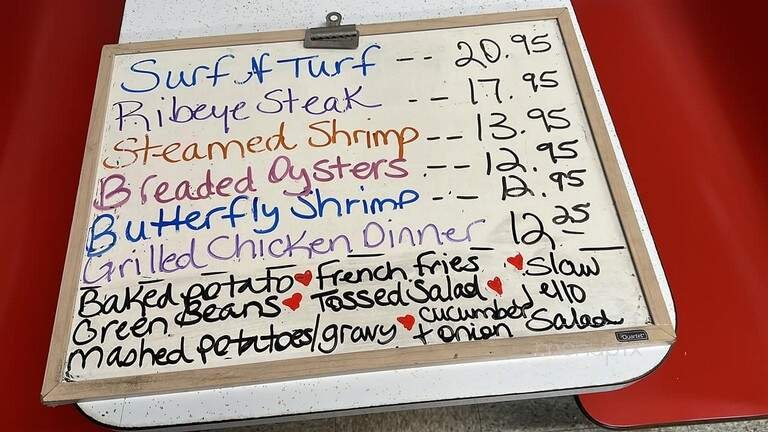 Surf N Turf -- 20.95
Ribeye Steak -- 17.95
Steamed Shrimp -- 13.95
Breaded Oysters -- 12.95
Butterfly Shrimp -- 12.95
Grilled Chicken Dinner - 12.25
Baked potato ♥ French fries ♥ Slaw
Green Beans ♥ Tossed Salad ♥ Jello
mashed potatoes/gravy ♥ cucumber
+ onion Salad
Quartet